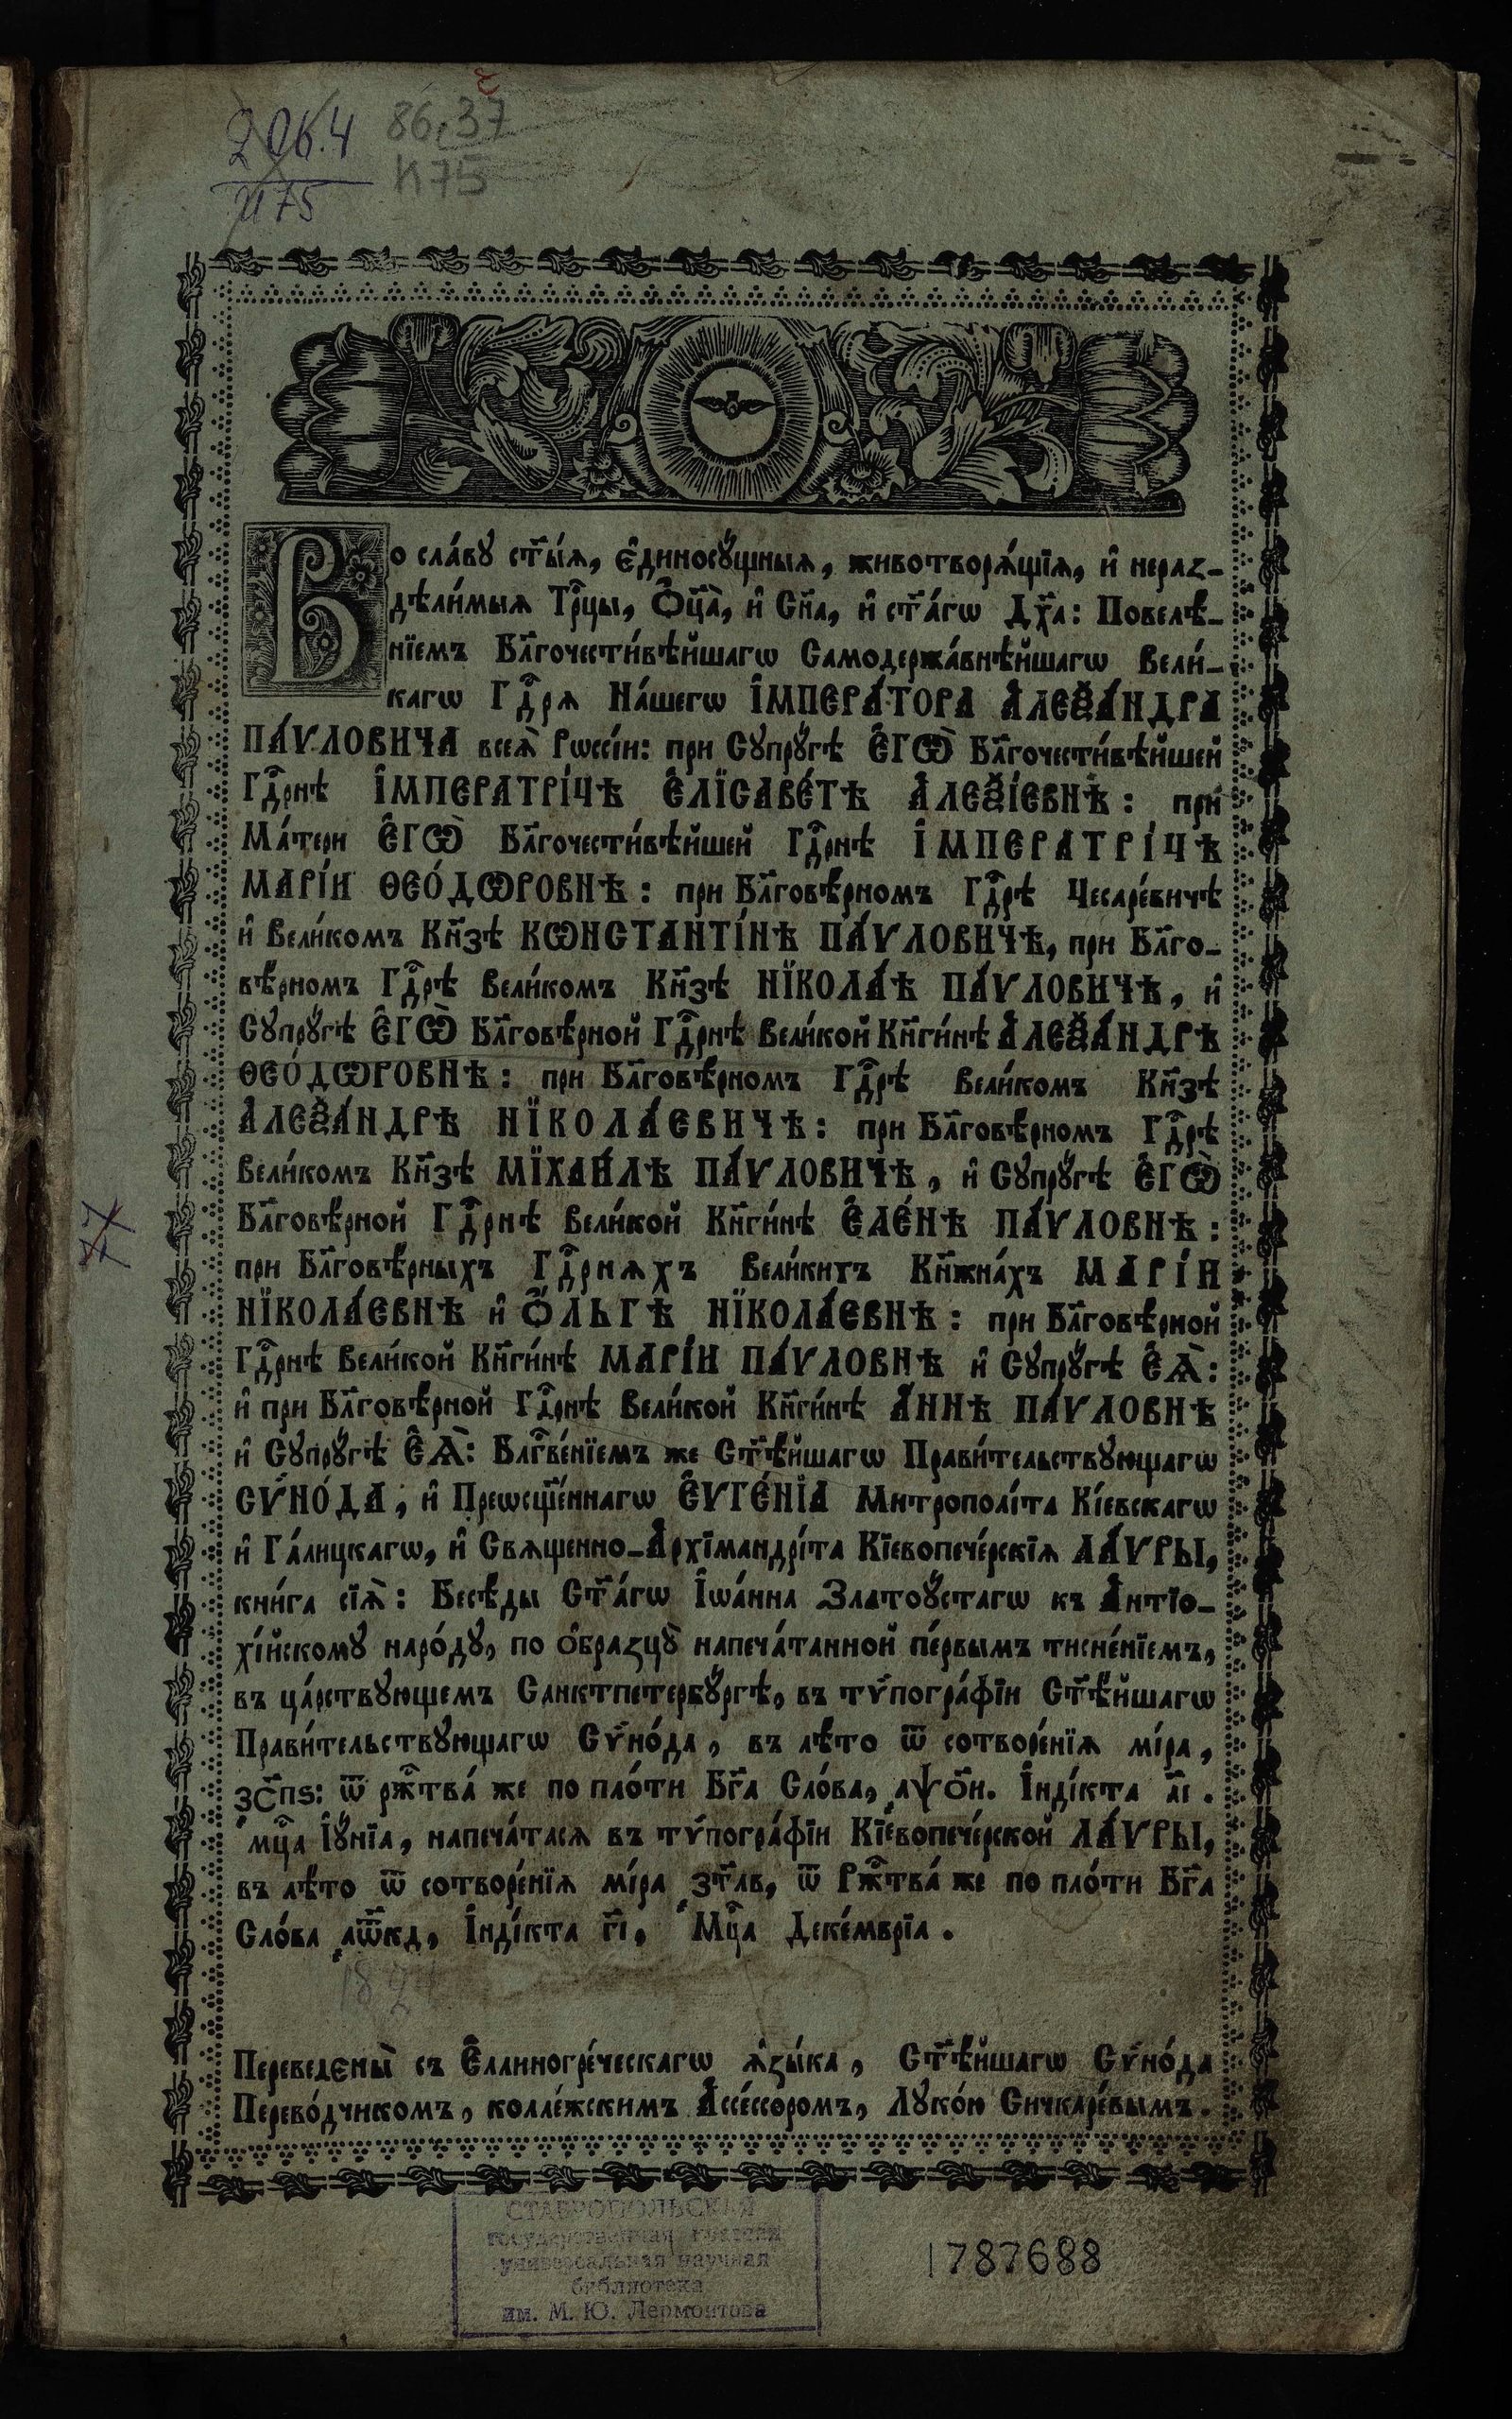 206.4 86.37
И75 И75
Во сла́вꙋ ст҃ы́ѧ, є҆диносꙋ́щныѧ, животворѧ́щїѧ, и҆ нераз-
дѣли́мыѧ Трⷪ҇цы, Ѻ҆ц҃а̀, и҆ Сн҃а, и҆ ст҃а́гѡ Дх҃а: Повелѣ́-
нїемъ Бл҃гочести́вѣйшагѡ Самодержа́внѣйшагѡ Вели́-
кагѡ Гдⷭ҇рѧ На́шегѡ І҆МПЕРА́ТОРА А҆ЛЕѮА́НДРА
ПА́ѴЛОВИЧА всеѧ̀ Рѡссі́и: при Сꙋпрꙋ́гѣ Є҆ГѠ̀ Бл҃гочести́вѣйшей
Гдⷭ҇рнѣ І҆МПЕРАТРІ́ЦѢ Є҆ЛЇСАВЕ́ТѢ А҆ЛЕѮІ́ЕВНѢ: при́
Ма́тери Є҆ГѠ̀ Бл҃гочести́вѣйшей Гдⷭ҇рнѣ І҆МПЕРАТРІ́ЦѢ
МАРІ́И ѲЕО́ДѠРОВНѢ: при Бл҃говѣ́рномъ Гдⷭ҇рѣ Цесаре́вичѣ
и҆ Вели́комъ Кн҃зѣ КѠНСТАНТІ́НѢ ПА́ѴЛОВИЧѢ, при Бл҃го-
вѣ́рномъ Гдⷭ҇рѣ Вели́комъ Кн҃зѣ НЇКОЛА́Ѣ ПА́ѴЛОВИЧѢ, и҆
Сꙋпрꙋ́гѣ Є҆ГѠ̀ Бл҃говѣ́рной Гдⷭ҇рнѣ Вели́кой Кн҃ги́нѣ А҆ЛЕѮА́НДРѢ
ѲЕО́ДѠРОВНѢ: при Бл҃говѣ́рномъ Гдⷭ҇рѣ Вели́комъ Кн҃зѣ
А҆ЛЕѮА́НДРѢ НЇКОЛА́ЕВИЧѢ: при Бл҃говѣ́рномъ Гдⷭ҇рѣ
Вели́комъ Кн҃зѣ МЇХАИ́ЛѢ ПА́ѴЛОВИЧѢ, и҆ Сꙋпрꙋ́гѣ Є҆ГѠ̀
Бл҃говѣ́рной Гдⷭ҇рнѣ Вели́кой Кн҃ги́нѣ Є҆ЛЕ́НѢ ПА́ѴЛОВНѢ:
при Бл҃говѣ́рныхъ Гдⷭ҇рнѧхъ Вели́кихъ Кн҃жна́хъ МАРІ́И
НЇКОЛА́ЕВНѢ и҆ Ѻ҆́ЛЬГѢ НЇКОЛА́ЕВНѢ: при Бл҃говѣ́рной
Гдⷭ҇рнѣ Вели́кой Кн҃ги́нѣ МАРІ́И ПА́ѴЛОВНѢ и҆ Сꙋпрꙋ́гѣ Є҆Ѧ̀:
и҆ при Бл҃говѣ́рной Гдⷭ҇рнѣ Вели́кой Кн҃ги́нѣ А҆́ННѢ ПА́ѴЛОВНѢ
и҆ Сꙋпрꙋ́гѣ Є҆Ѧ̀: Блгⷭ҇ве́нїемъ же Ст҃ѣ́йшагѡ Прави́тельствꙋющагѡ
СѴНО́ДА, и҆ Преѡсщ҃е́ннагѡ Є҆ѴГЕ́НЇА Митрополі́та Кі́евскагѡ
и҆ Га́лицкагѡ, и҆ Свѧщенно-А҆рхїмандрі́та Кїевопече́рскїѧ ЛА́ѴРЫ,
кни́га сїѧ̀: Бесѣ́ды Ст҃а́гѡ І҆ѡа́нна Златоꙋ́стагѡ къ А҆нтїо-
хі́йскомꙋ наро́дꙋ, по ѻ҆бразцꙋ̀ напеча́танной пе́рвымъ тисне́нїемъ,
въ ца́рствꙋющемъ Санктпетербꙋ́ргѣ, въ тѵпогра́фїи Ст҃ѣ́йшагѡ
Прави́тельствꙋющагѡ Сѵно́да, въ лѣ́то ѿ сотворе́нїѧ мі́ра,
҂зс҃пѕ: ѿ ржⷭ҇тва́ же по пло́ти Бг҃а Сло́ва, ҂аѱо҃и. І҆нді́кта а҃і.
мцⷭ҇а І҆ꙋ́нїа, напеча́тасѧ въ тѵпогра́фїи Кїевопече́рской ЛА́ѴРЫ,
въ лѣ́то ѿ сотворе́нїѧ мі́ра ҂зт҃лв, ѿ Ржⷭ҇тва́ же по пло́ти Бг҃а
Сло́ва ҂аѿ҃кд, І҆нді́кта г҃і, Мцⷭ҇а Деке́мврїа.
182
Переведєны̀ съ Є҆ллиногре́ческагѡ ѧ҆зы́ка, Ст҃ѣ́йшагѡ Сѵно́да
Перево́дчикомъ, колле́жскимъ А҆ссе́ссоромъ, Лꙋко́ю Сичкаре́вымъ.
СТАВРОПОЛЬСКАЯ
государственная краевая
универсальная научная
библиотека
им. М. Ю. Лермонтова
1787688